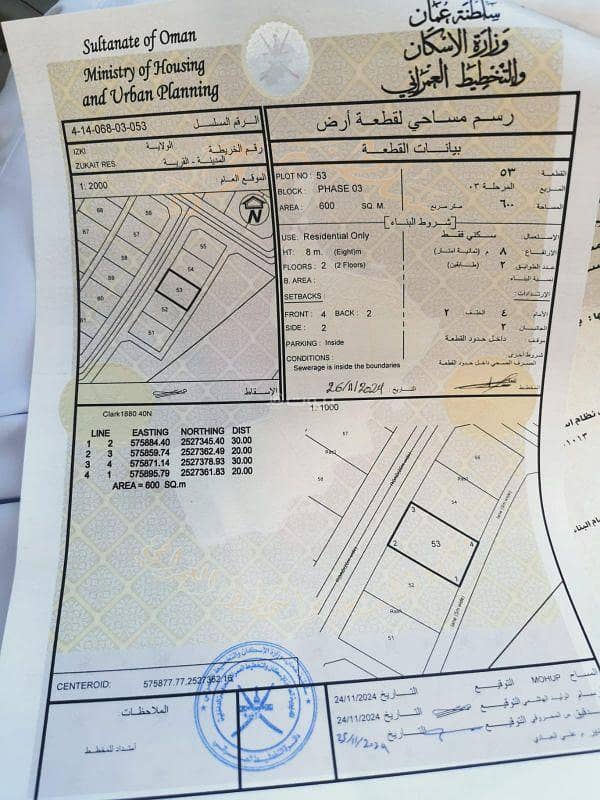 Sultanate of Oman
Ministry of Housing
and Urban Planning
سلطنة عمان
وزارة الإسكان
والتخطيط العمراني
4-14-068-03-053 الرقم المسلسل
IZKI الولاية
رقم الخريطة
ZUKAIT RES. المدينة - القرية
1: 2000 الموقع العام
N
56
55
54
53
52
51
الإسقاط
رسم مساحي لقطعة أرض
بيانات القطعة
PLOT NO : 53 ٥٣ القطعة :
BLOCK : PHASE 03 المرحلة ٠٣ المربع
AREA : 600 SQ. M. متر مربع ٦٠٠ المساحة
شروط البناء
USE: Residential Only سكني فقط الإستعمال:
HT: 8 m. (Eight)m ٨ م (ثمانية امتار) الارتفاع
FLOORS : 2 (2 Floors) ٢ (طابقين) عدد الطوابق
B. AREA :
SETBACKS : الإرتدادات:
FRONT : 4 BACK : 2 ٢ الخلف ٤ الأمام
SIDE : 2 ٢ الجانبان
PARKING : Inside داخل حدود القطعة موقف:
CONDITIONS : شروط اخرى
Sewerage is inside the boundaries الصرف الصحي داخل حدود القطعة
26/11/2024 التاريخ: المخطط
Clark1880 40N
1: 1000
LINE EASTING NORTHING DIST
1 2 575884.40 2527345.40 30.00
2 3 575859.74 2527362.49 20.00
3 4 575871.14 2527378.93 30.00
4 1 575895.79 2527361.83 20.00
AREA = 600 SQ.m
57
58
54
3
2
53
4
1
52
51
lane (5m wide)
lane (5m wide)
CENTEROID: 575877.77,2527362.16
الملاحظات
امتداد للمخطط
24/11/2024 التاريخ التوقيع MOHUP المساح
24/11/2024 التاريخ التوقيع
25/11/2024 التاريخ التوقيع